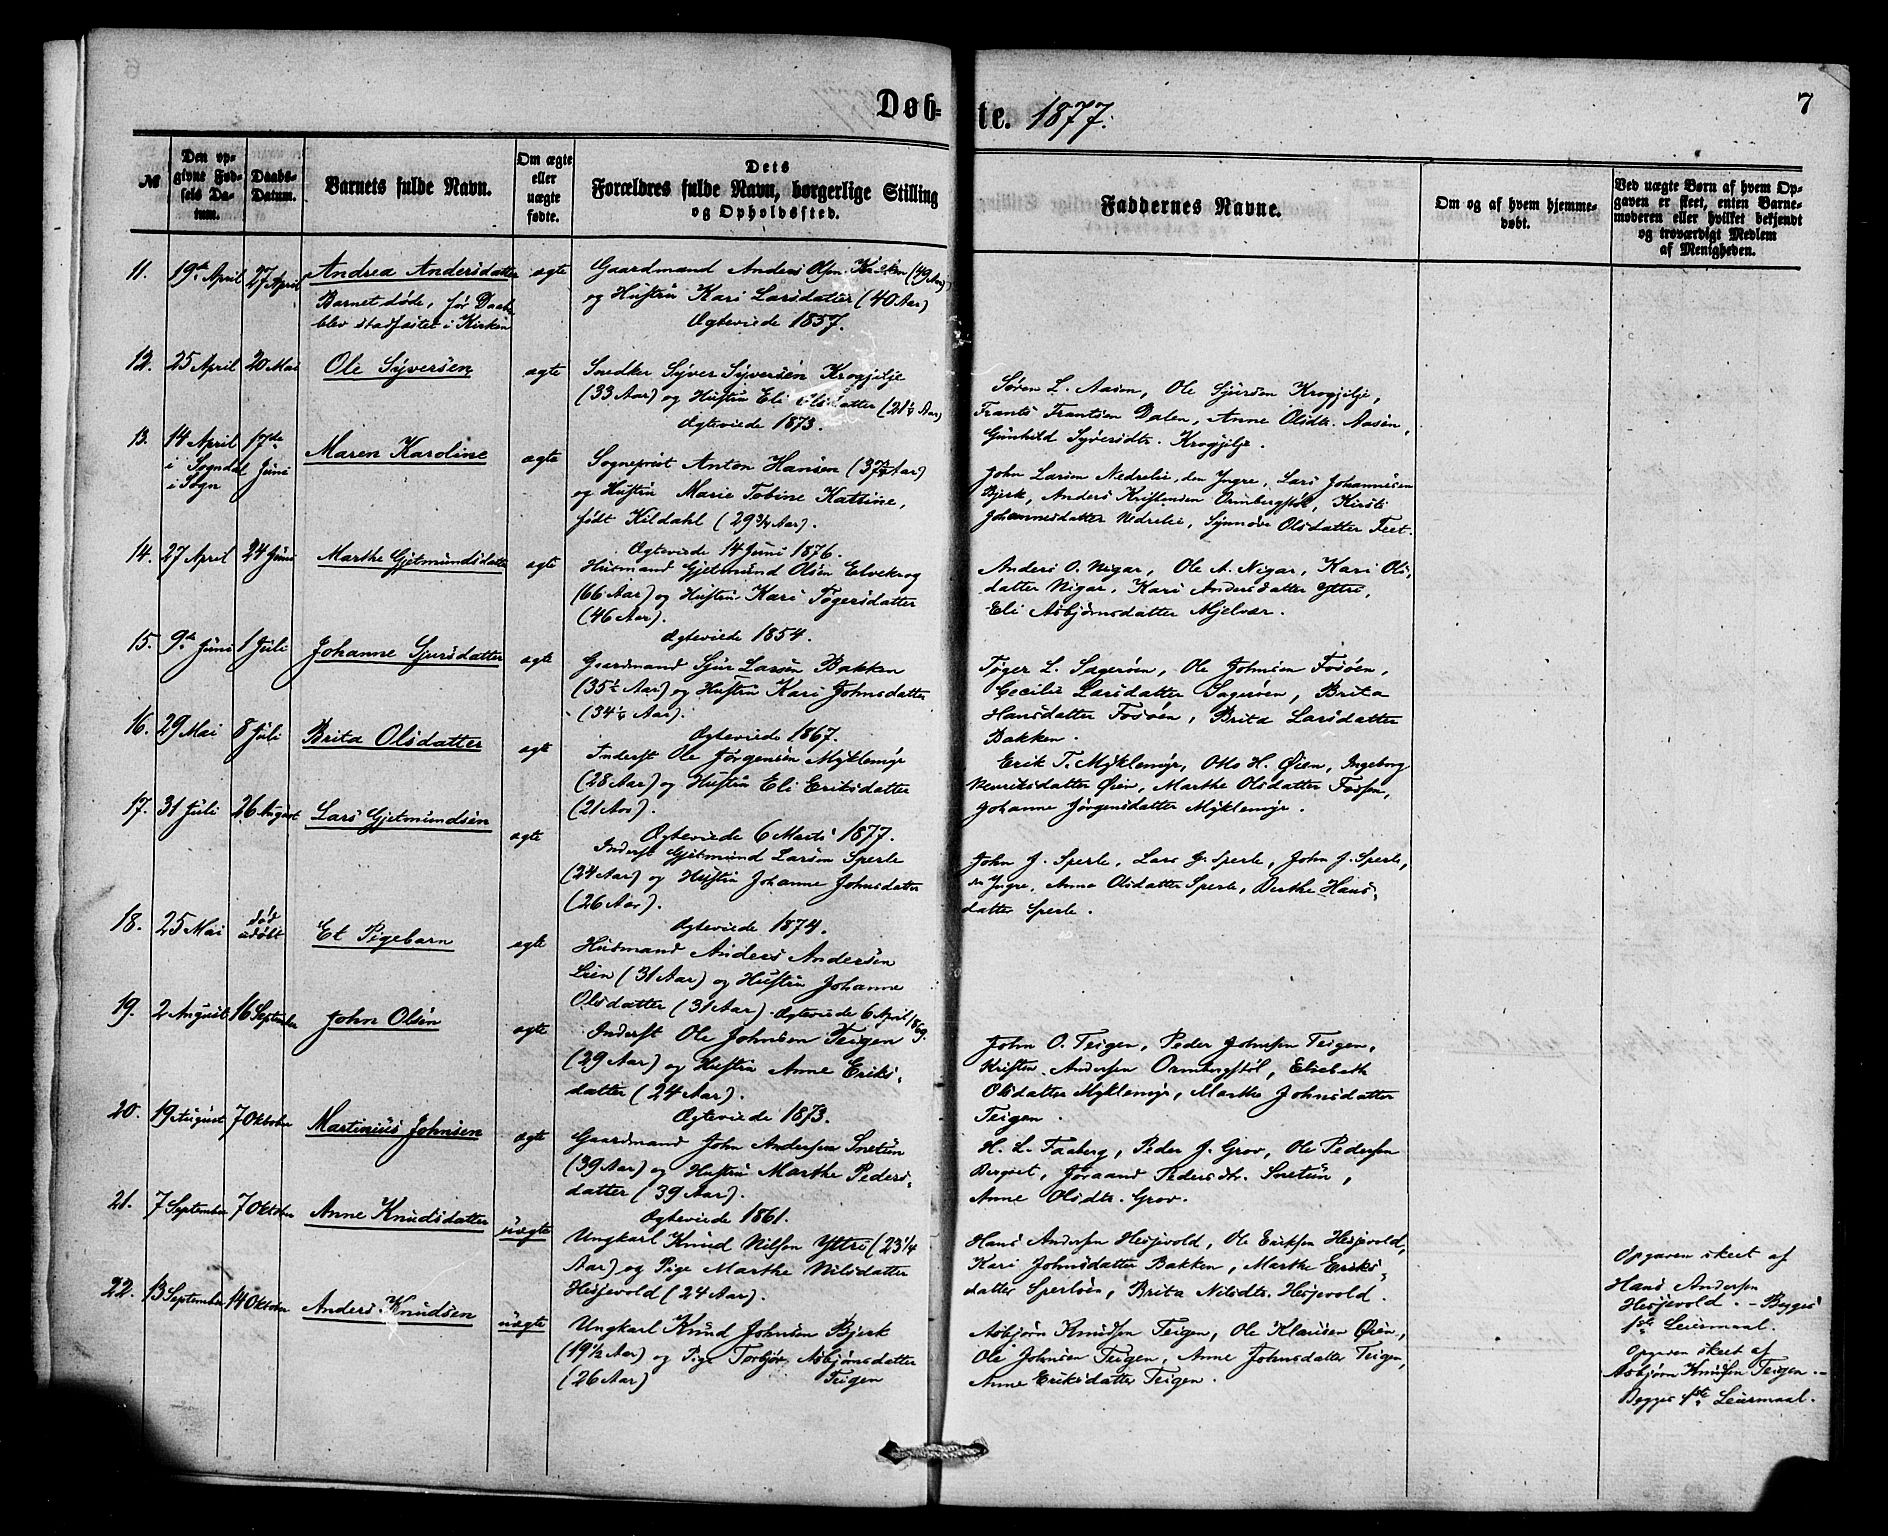 Døb=
te. 1877.
7
№
Den opgivne Fødsels Datum.
Daabs-Datum.
Barnets fulde Navn.
Om ægte eller uægte fødte.
Dets
Forældres fulde Navn, borgerlige Stilling
og Opholdssted.
Faddernes Navne.
Om og af hvem hjemme-
døbt.
Ved uægte Børn af hvem Op-
gaven er skeet, enten Barne-
moderen eller hvilket bekjendt
og troværdigt Medlem
af Menigheden.
11. 19de April 27 April Andrea Andersdatter ægte Gaardmand Anders Olsen (49 Aar)
Barnet døde, før Daab og Hustru Kari Larsdatter (40 Aar)
blev stadfæstet i Kirken Ægteviede 1857.
12. 25 April 20 Mai Ole Syversen ægte Snedker Syver Syversen Krogjilje
(33 Aar) og Hustru Eli Olsdatter (21½ Aar)
Ægteviede 1873.
Søren L. Aasen, Ole Sjursen Krogjilje,
Frants Frantsen Dalen, Anne Olsdtr. Aasen,
Gunhild Syversdtr. Krogjilje.
13. 14 April 17de Maren Karoline ægte Sogneprest Anton Hansen (37½ Aar)
i Sogndal Juni og Hustru Marie Tobine Katrine,
i Sogn født Kildahl (29¾ Aar).
Ægteviede 14 Juni 1876.
John Larsen Nedrelie, den Yngre, Lars Johannessen
Bjerk, Anders Kristensen Ormbergstøl, Kirsti
Johannesdatter Nedrelie, Synnøve Olsdatter Feet.
14. 27 April 24 Juni Marthe Gjetmundsdatter ægte Husmand Gjetmund Olsen Elvekrog
(66 Aar) og Hustru Kari Tøgersdatter
(46 Aar).
Ægteviede 1854.
Anders O. Nigar, Ole A. Nigar, Kari Ols-
datter Nigar, Kari Andersdatter Yttre,
Eli Asbjørnsdatter Mjelvær.
15. 9de Juni 1 Juli Johanne Sjursdatter ægte Gaardmand Sjur Larsen Bakken
(35½ Aar) og Hustru Kari Johnsdatter
(34¼ Aar).
Ægteviede 1867.
Tøger L. Sagerøen, Ole Johnsen Fosøen,
Cecilie Larsdatter Sagerøen, Brita
Hansdatter Fosøen, Brita Larsdatter
Bakken.
16. 29 Mai 8 Juli Brita Olsdatter ægte Inderst Ole Jørgensen Myklemyr
(28 Aar) og Hustru Eli Eriksdatter
(21 Aar).
Ægteviede 6 Marts 1877.
Erik T. Myklemyr, Otto H. Øien, Ingeborg
Henriksdatter Øien, Marthe Olsdatter Fossen,
Johanne Jørgensdatter Myklemyr.
17. 31 Juli 26 August Lars Gjetmundsen ægte Inderst Gjetmund Larsen Sperle
(24 Aar) og Hustru Johanne Johnsdatter
(26 Aar).
Ægteviede 1874.
John J. Sperle, Lars G. Sperle, John J. Sperle,
den Yngre, Anna Olsdatter Sperle, Berthe Hans-
datter Sperle.
18. 25 Mai død Et Pigebarn ægte Husmand Anders Andersen
udøbt Lien (31 Aar) og Hustru Johanne
Olsdatter (31 Aar). Ægteviede 6 April 1869.
19. 2 August 16 September John Olsen ægte Inderst Ole Johnsen Teigen
(29 Aar) og Hustru Anne Eriks-
datter (24 Aar).
Ægteviede 1873.
John O. Teigen, Peder Johnsen Teigen,
Kristen Andersen Ormbergstøl, Elisabeth
Olsdatter Myklemyr, Marthe Johnsdatter
Teigen.
20. 19 August 7 Oktober Martinius Johnsen ægte Gaardmand John Andersen Snetun
(39 Aar) og Hustru Marthe Peders-
datter (39 Aar).
Ægteviede 1861.
H. L. Faaberg, Peder J. Grov, Ole Pedersen
Berget, Jøraand Pedersdtr. Snetun,
Anne Olsdtr. Grov.
21. 7 September 7 Oktober Anne Knudsdatter uægte Ungkarl Knud Nilsen Yttri (23¼
Aar) og Pige Marthe Nilsdatter
Hesjevold (24 Aar).
Hans Andersen Hesjevold, Ole Eriksen Hesjevold,
Kari Johnsdatter Bakken, Marthe Eriks-
datter Sperleøen, Brita Nilsdtr. Hesjevold.
Opgaven skeet af
Hans Andersen
Hesjevold. - Begges
1ste Leiermaal.
22. 13 September 14 Oktober Anders Knudsen uægte Ungkarl Knud Johnsen Bjerk
(19½ Aar) og Pige Torbjør Asbjørnsdatter
(26 Aar) Teigen
Asbjørn Knudsen Teigen, Ole Klausen Øien,
Ole Johnsen Teigen, Anne Johnsdatter Teigen,
Anne Eriksdatter Teigen.
Opgaven skeet af
Asbjørn Knudsen Teigen. -
Begges 1ste Leiermaal.